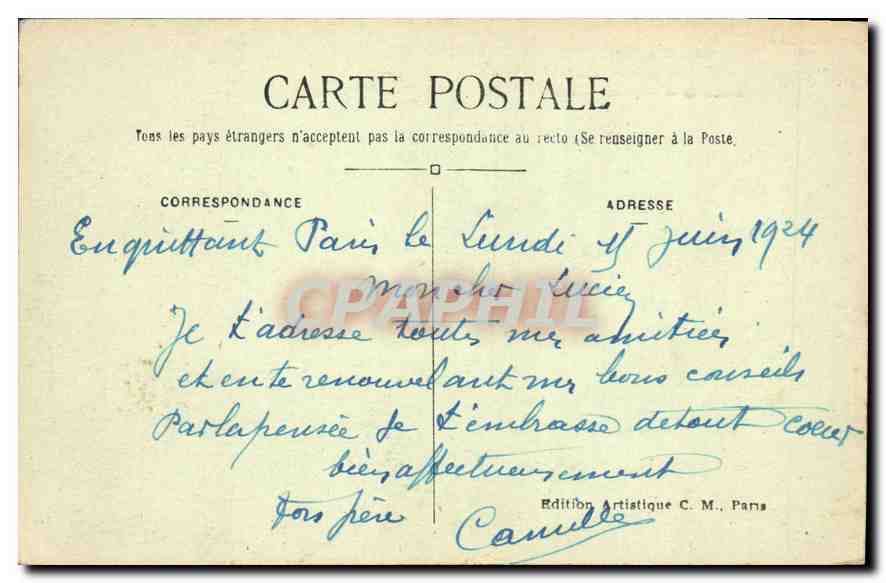 CARTE POSTALE
Tous les pays étrangers n'acceptent pas la correspondance au recto (Se renseigner à la Poste.
CORRESPONDANCE
ADRESSE
En quittant Paris le Lundi 15 Juin 1924
Mon cher Lucien
CPAPHIL
Je t'adresse toutes mes amitiés
et en te renouvelant mes bons conseils
Par la pensée Je t'embrasse de tout coeur
bien affectueusement
Ton frère
Camille
Edition Artistique C. M., Paris